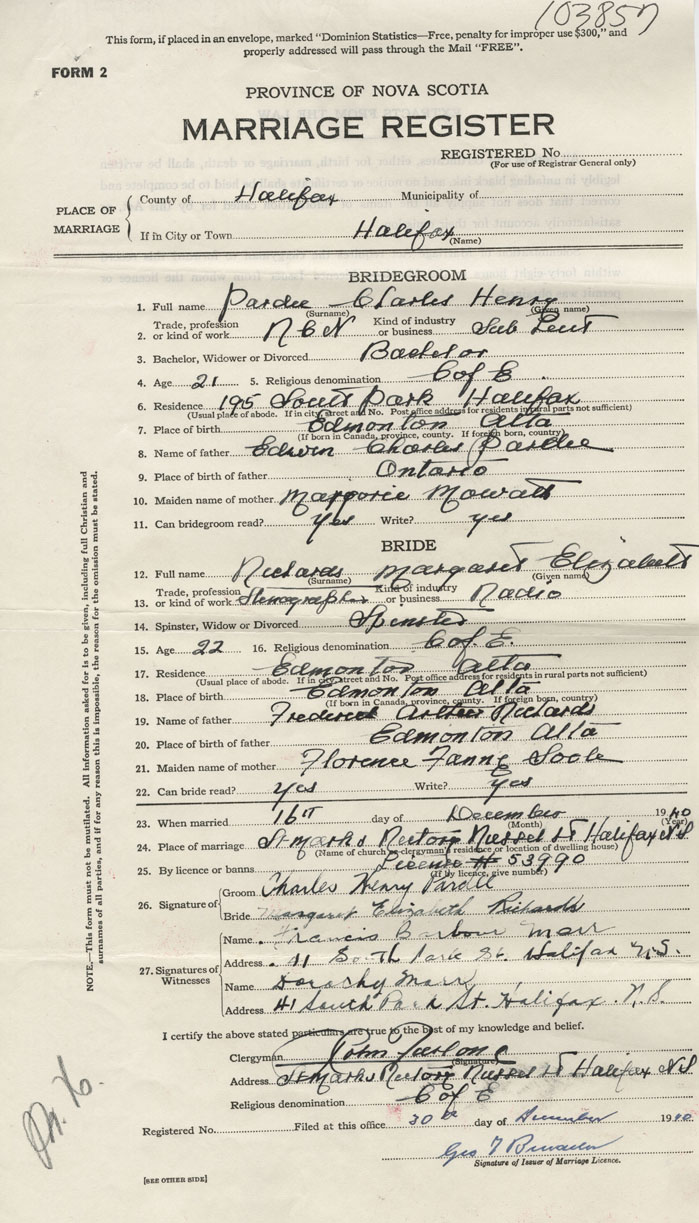 103857
This form, if placed in an envelope, marked "Dominion Statistics—Free, penalty for improper use $300," and
properly addressed will pass through the Mail "FREE".
FORM 2
PROVINCE OF NOVA SCOTIA
MARRIAGE REGISTER
REGISTERED No.
(For use of Registrar General only)
PLACE OF MARRIAGE
County of Halifax Municipality of
If in City or Town Halifax
(Name)
BRIDEGROOM
1. Full name Pardee Charles Henry
(Surname) (Given name)
2. Trade, profession or kind of work RCN Kind of industry or business Sub Leut
3. Bachelor, Widower or Divorced Bachelor
4. Age 21 5. Religious denomination C of E
6. Residence 195 South Park Halifax
(Usual place of abode. If in city street and No. Post office address for residents in rural parts not sufficient)
7. Place of birth Edmonton Alta
(If born in Canada, province, county. If foreign born, country)
8. Name of father Edwin Charles Pardee
9. Place of birth of father Ontario
10. Maiden name of mother Marjorie Mowatt
11. Can bridegroom read? yes Write? yes
BRIDE
12. Full name Richards Margaret Elizabeth
(Surname) (Given name)
13. Trade, profession or kind of work Stenographer Kind of industry or business Radio
14. Spinster, Widow or Divorced Spinster
15. Age 22 16. Religious denomination C of E.
17. Residence Edmonton Alta
(Usual place of abode. If in city street and No. Post office address for residents in rural parts not sufficient)
18. Place of birth Edmonton Alta
(If born in Canada, province, county. If foreign born, country)
19. Name of father Frederick Arthur Richards
20. Place of birth of father Edmonton Alta
21. Maiden name of mother Florence Fanny Soole
22. Can bride read? yes Write? yes
23. When married 16th day of December 1940
(Month) (Year)
24. Place of marriage St marks Rectory Russel St Halifax N.S
(Name of church or clergyman's residence or location of dwelling house)
25. By licence or banns License # 53990
(If by licence, give number)
26. Signature of
Groom Charles Henry Pardee
Bride Margaret Elizabeth Richards
27. Signatures of Witnesses
Name Francis Barbour Marr
Address 41 South Park St. Halifax N.S.
Name Dorothy Marr
Address 41 South Park St. Halifax. N.S.
I certify the above stated particulars are true to the best of my knowledge and belief.
Clergyman John Furlong
(Signature)
Address St marks Rectory Russel St Halifax N.S
Religious denomination C of E
Registered No. Filed at this office 30th day of December 1940
Geo
Signature of Issuer of Marriage Licence.
[SEE OTHER SIDE]
NOTE.—This form must not be mutilated. All information asked for is to be given, including full Christian and
surnames of all parties, and if for any reason this is impossible, the reason for the omission must be stated.